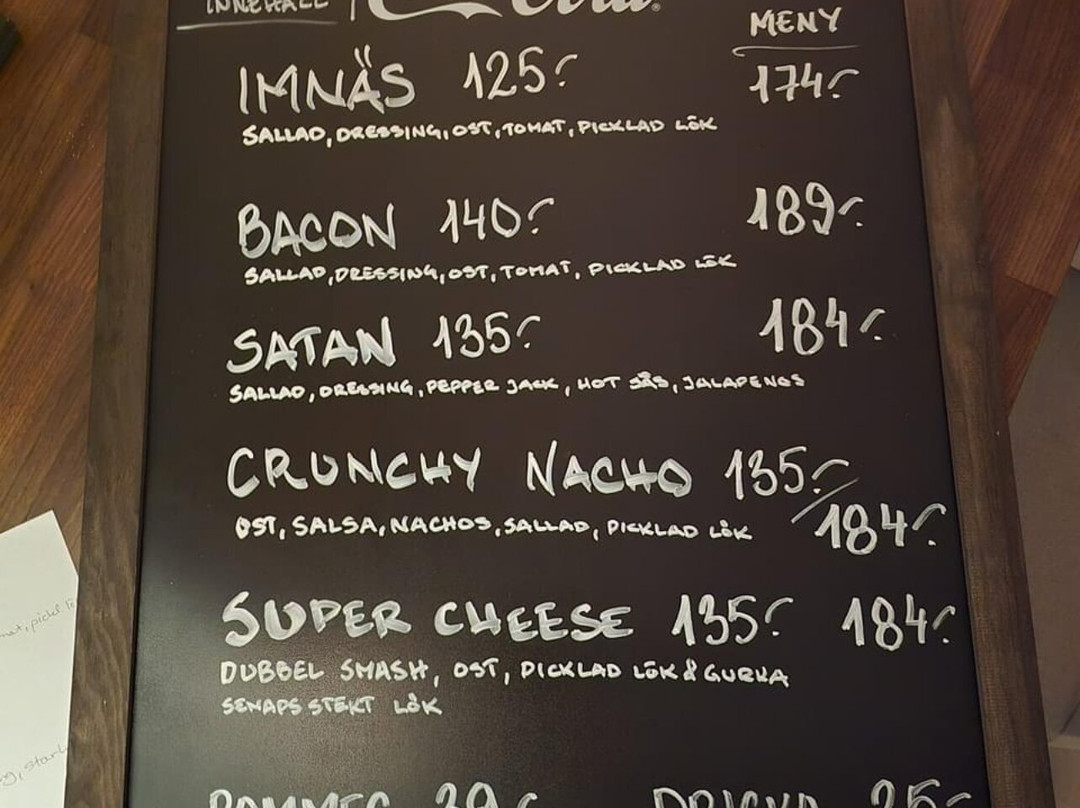 INNEHÅLL Cola
MENY
IMNÄS 125:- 174:-
SALLAD, DRESSING, OST, TOMAT, PICKLAD LÖK
BACON 140:- 189:-
SALLAD, DRESSING, OST, TOMAT, PICKLAD LÖK
SATAN 135:- 184:-
SALLAD, DRESSING, PEPPER JACK, HOT SÅS, JALAPENOS
CRUNCHY NACHO 135:-
OST, SALSA, NACHOS, SALLAD, PICKLAD LÖK 184:-
SUPER CHEESE 135:- 184:-
DUBBEL SMASH, OST, PICKLAD LÖK & GURKA
SENAPS STEKT LÖK
POMMES 39:- DRICKA 25:-